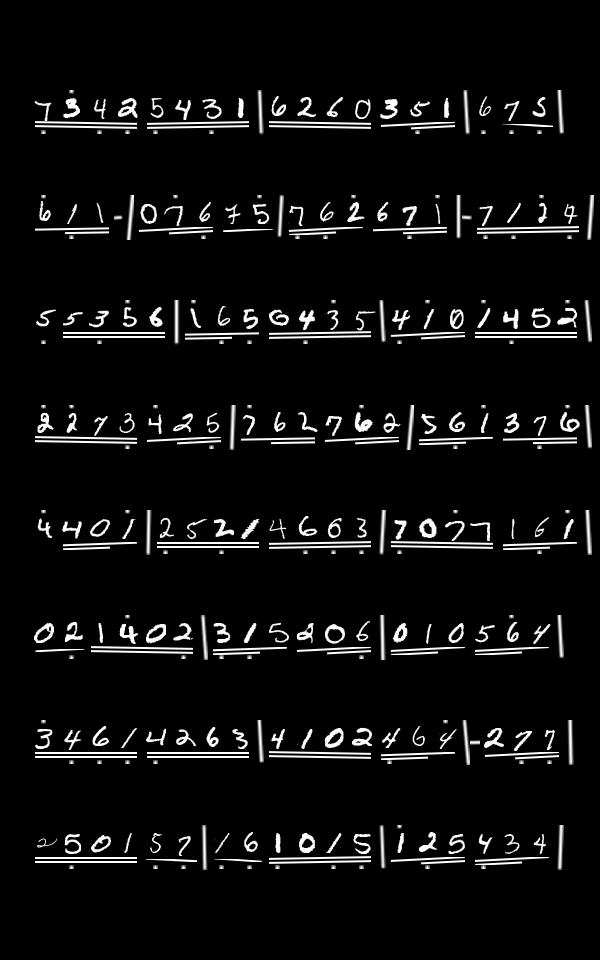 7 3 4 2 5 4 3 1 | 6 2 6 0 3 5 1 | 6 7 5 |
6 1 1 - | 0 7 6 7 5 | 7 6 2 6 7 1 | - 7 1 2 4 |
5 5 3 5 6 | 1 6 5 0 4 3 5 | 4 1 0 1 4 5 2 |
2 2 7 3 4 2 5 | 7 6 2 7 6 2 | 5 6 1 3 7 6 |
4 4 0 1 | 2 5 2 1 4 6 6 3 | 7 0 7 7 1 6 1 |
0 2 1 4 0 2 | 3 1 5 2 0 6 | 0 1 0 5 6 4 |
3 4 6 1 4 2 6 3 | 4 1 0 2 4 6 4 | - 2 7 7 |
2 5 0 1 5 7 | 1 6 1 0 1 5 | 1 2 5 4 3 4 |